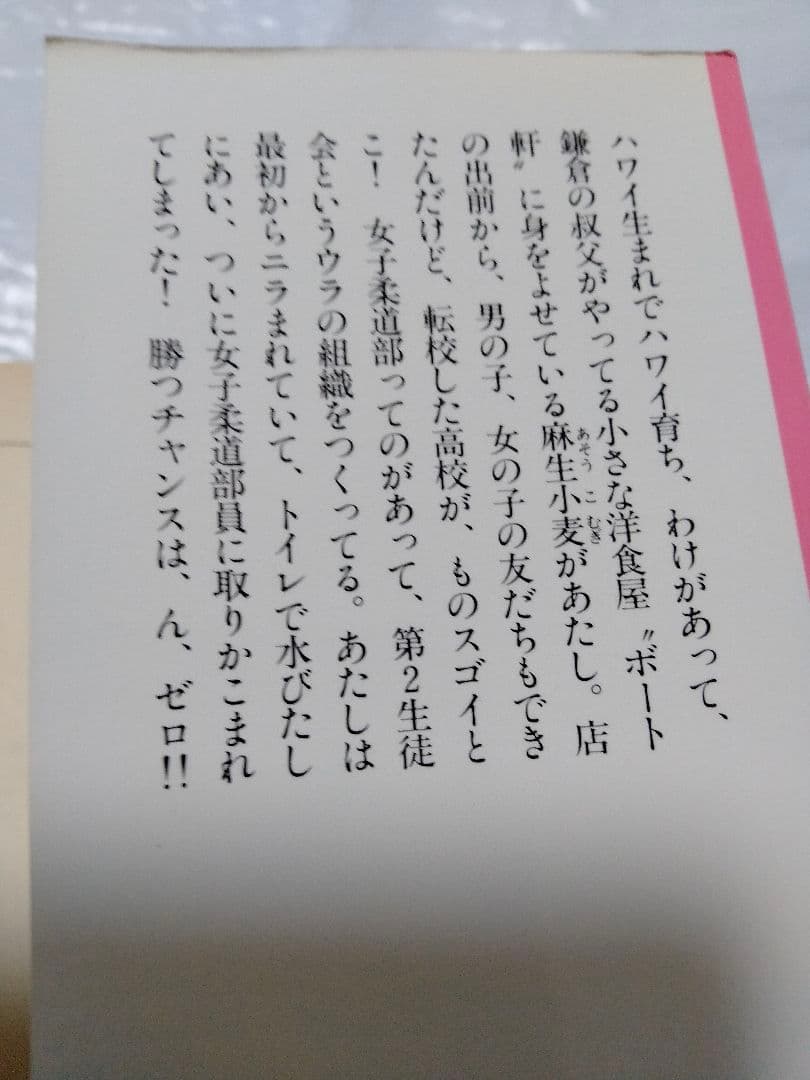 ハワイ生まれでハワイ育ち、わけがあって、
鎌倉の叔父がやってる小さな洋食屋〝ボート
軒〟に身をよせている麻生小麦があたし。店
あそう こ むぎ
の出前から、男の子、女の子の友だちもでき
たんだけど、転校した高校が、ものスゴイと
こ！ 女子柔道部ってのがあって、第2生徒
会というウラの組織をつくってる。あたしは
最初からニラまれていて、トイレで水びたし
にあい、ついに女子柔道部員に取りかこまれ
てしまった！ 勝つチャンスは、ん、ゼロ!!